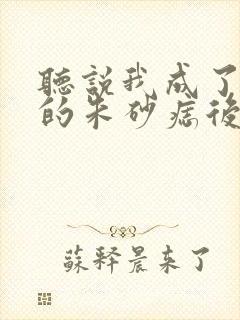 聽說我成了
的朱砂痣後
蘇釋晨來了